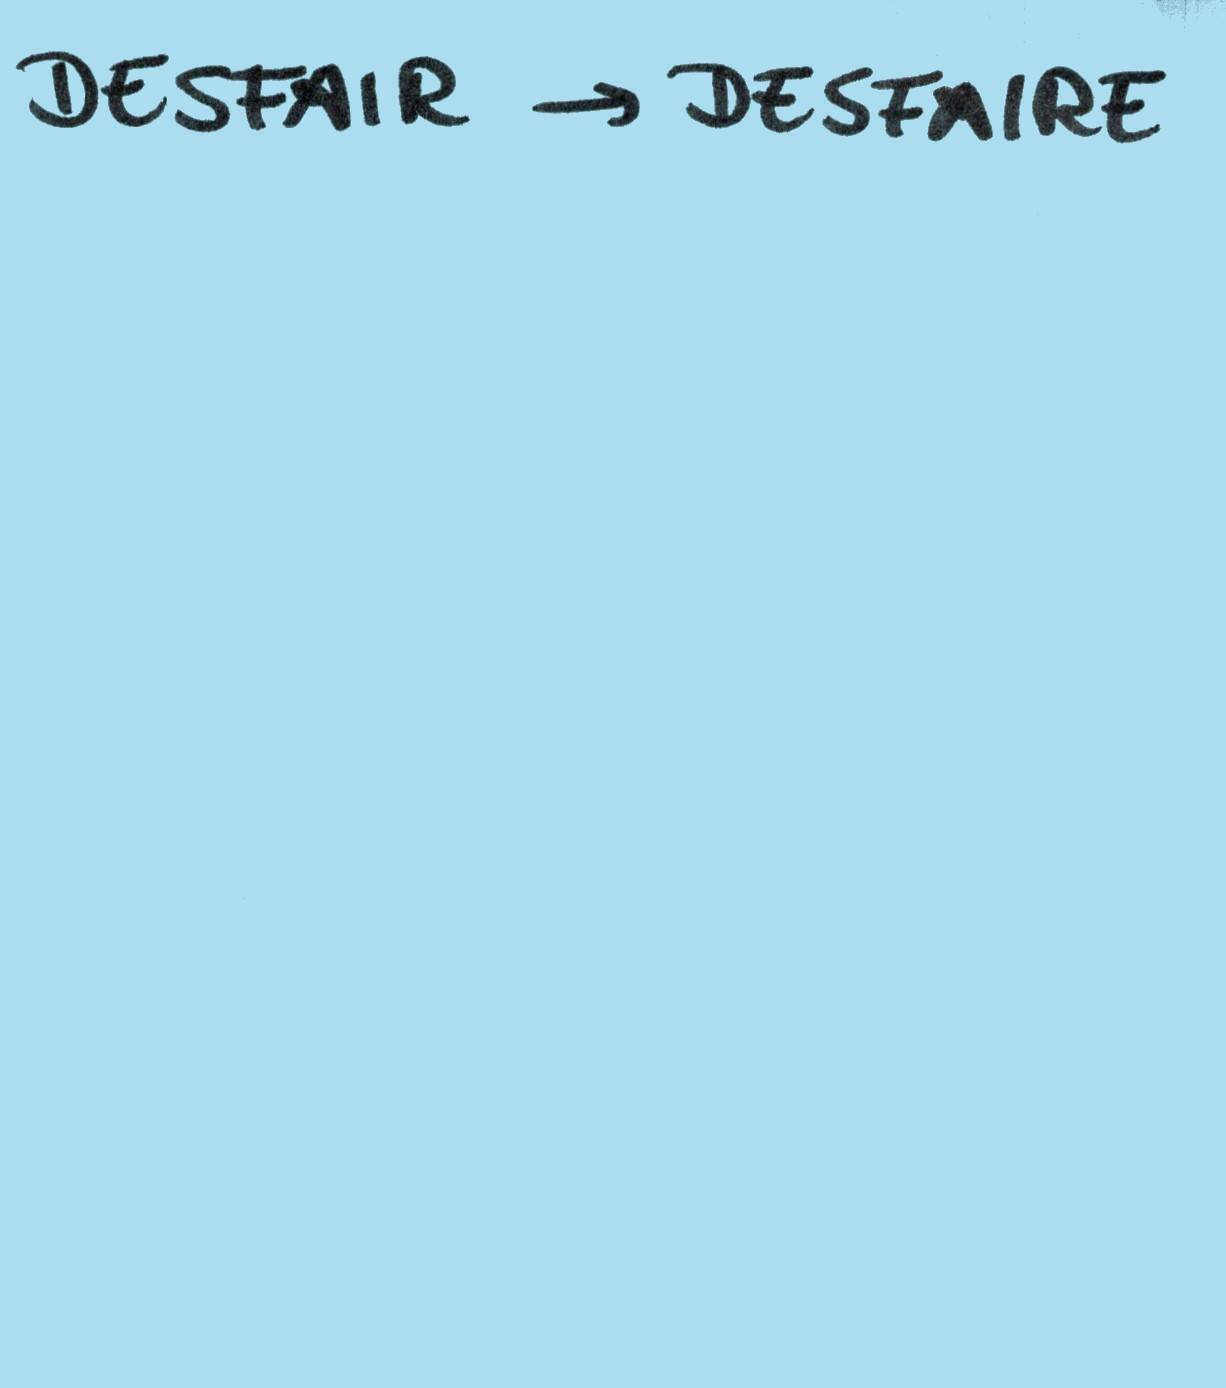 DESFAIR → DESFAIRE